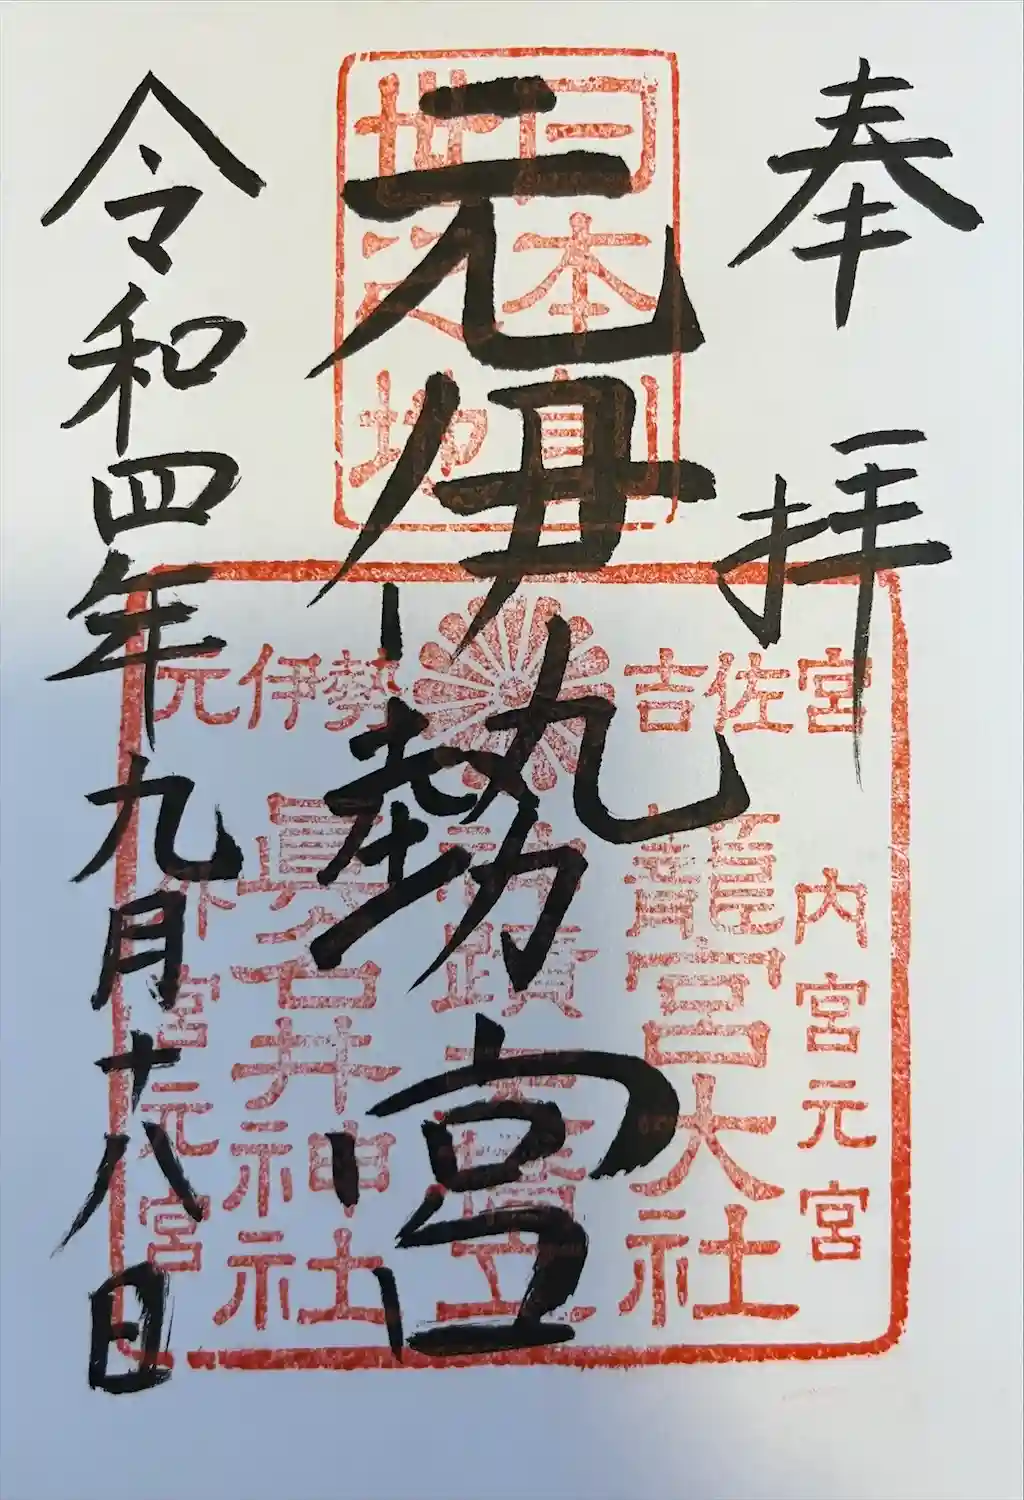 奉拝
元伊勢宮
令和四年九月十八日
日本創
世之地
吉佐宮
元伊勢
内宮元宮
龍宮大社
眞名井神社
外宮元宮